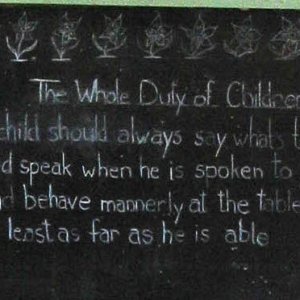 The Whole Duty of Children
child should always say whats t
d speak when he is spoken to
nd behave mannerly at the table
least as far as he is able